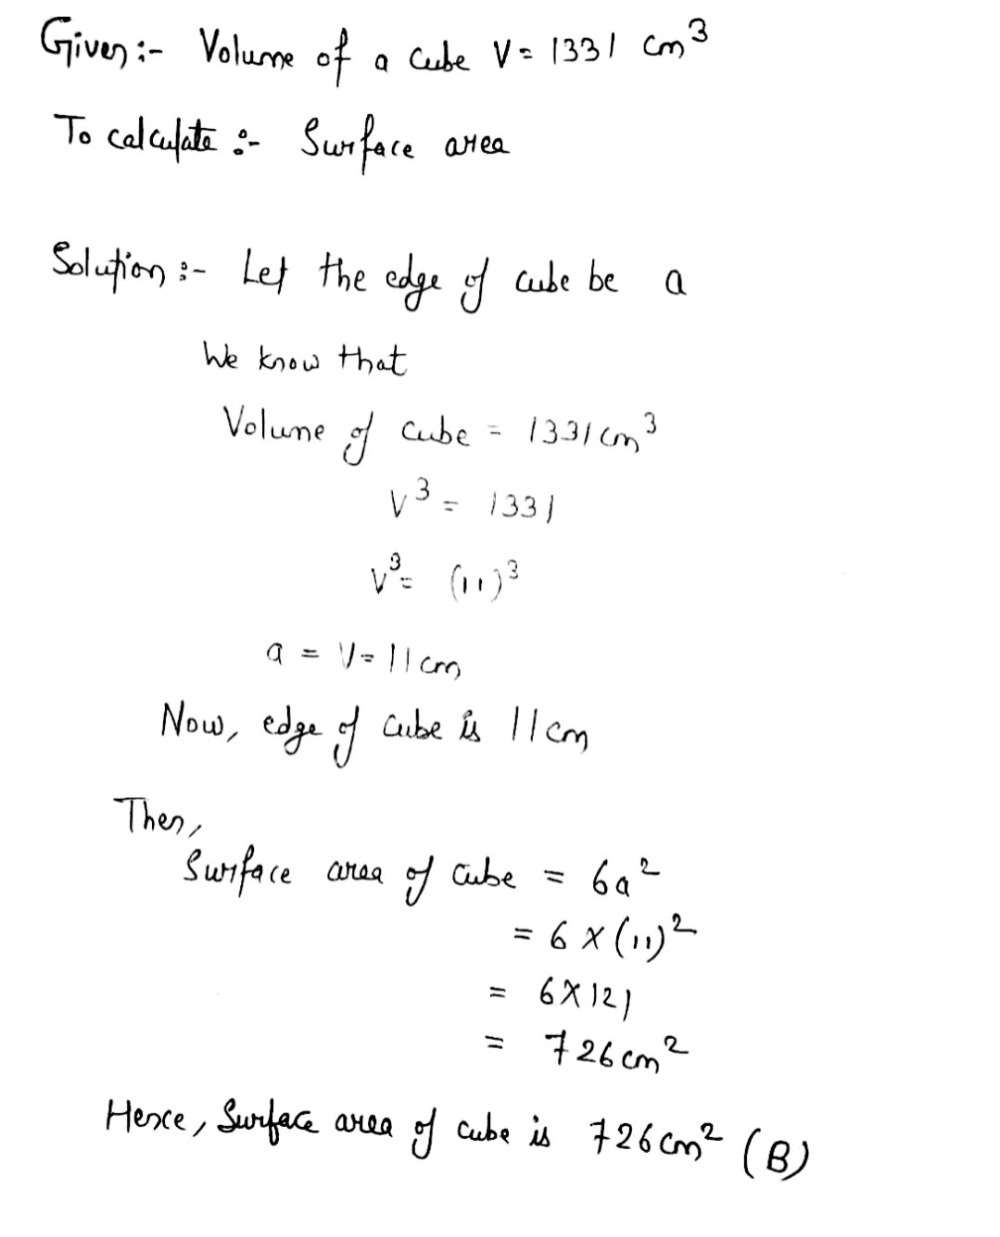 Given :- Volume of a cube V = 1331 cm³
To calculate :- Surface area
Solution :- Let the edge of cube be a
We know that
Volume of cube = 1331 cm³
V³ = 1331
V³ = (11)³
a = V = 11 cm
Now, edge of cube is 11 cm
Then,
Surface area of cube = 6a²
= 6 × (11)²
= 6 × 121
= 726 cm²
Hence, Surface area of cube is 726 cm² (B)